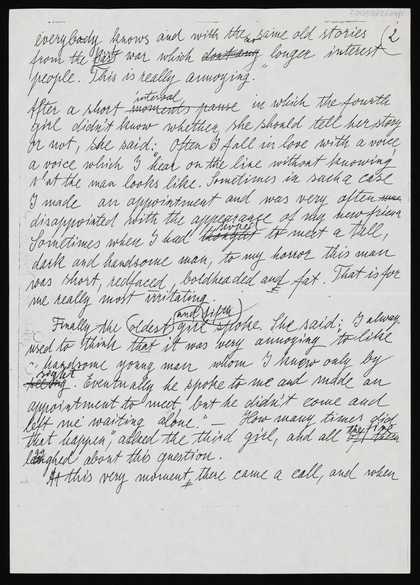 2
everybody knows and with the same old stories
from the last war which don't any longer interest
people. This is really annoying."
After a short interval moments pause in which the fourth
girl didn't know whether she should tell her story
or not, she said: Often I fall in love with a voice,
a voice which I hear on the line without knowing
what the man looks like. Sometimes in such a case
I made an appointment and was very often
disappointed with the appearance of my new friend
Sometimes when I had hoped thought to meet a tall,
dark and handsome man, to my horror this man
was short, redfaced, boldheaded and fat. That is for
me really most irritating.
Finally the oldest and fifth girl spoke. She said: I alway
used to think that it was very annoying to like
a handsome young man whom I knew only by
sight. Eventually he spoke to me and made an
appointment to meet, but he didn't come and
left me waiting alone. — "How many times did
that happen," asked the third girl, and all the five of them
laughed about this question.
At this very moment, there came a call, and when